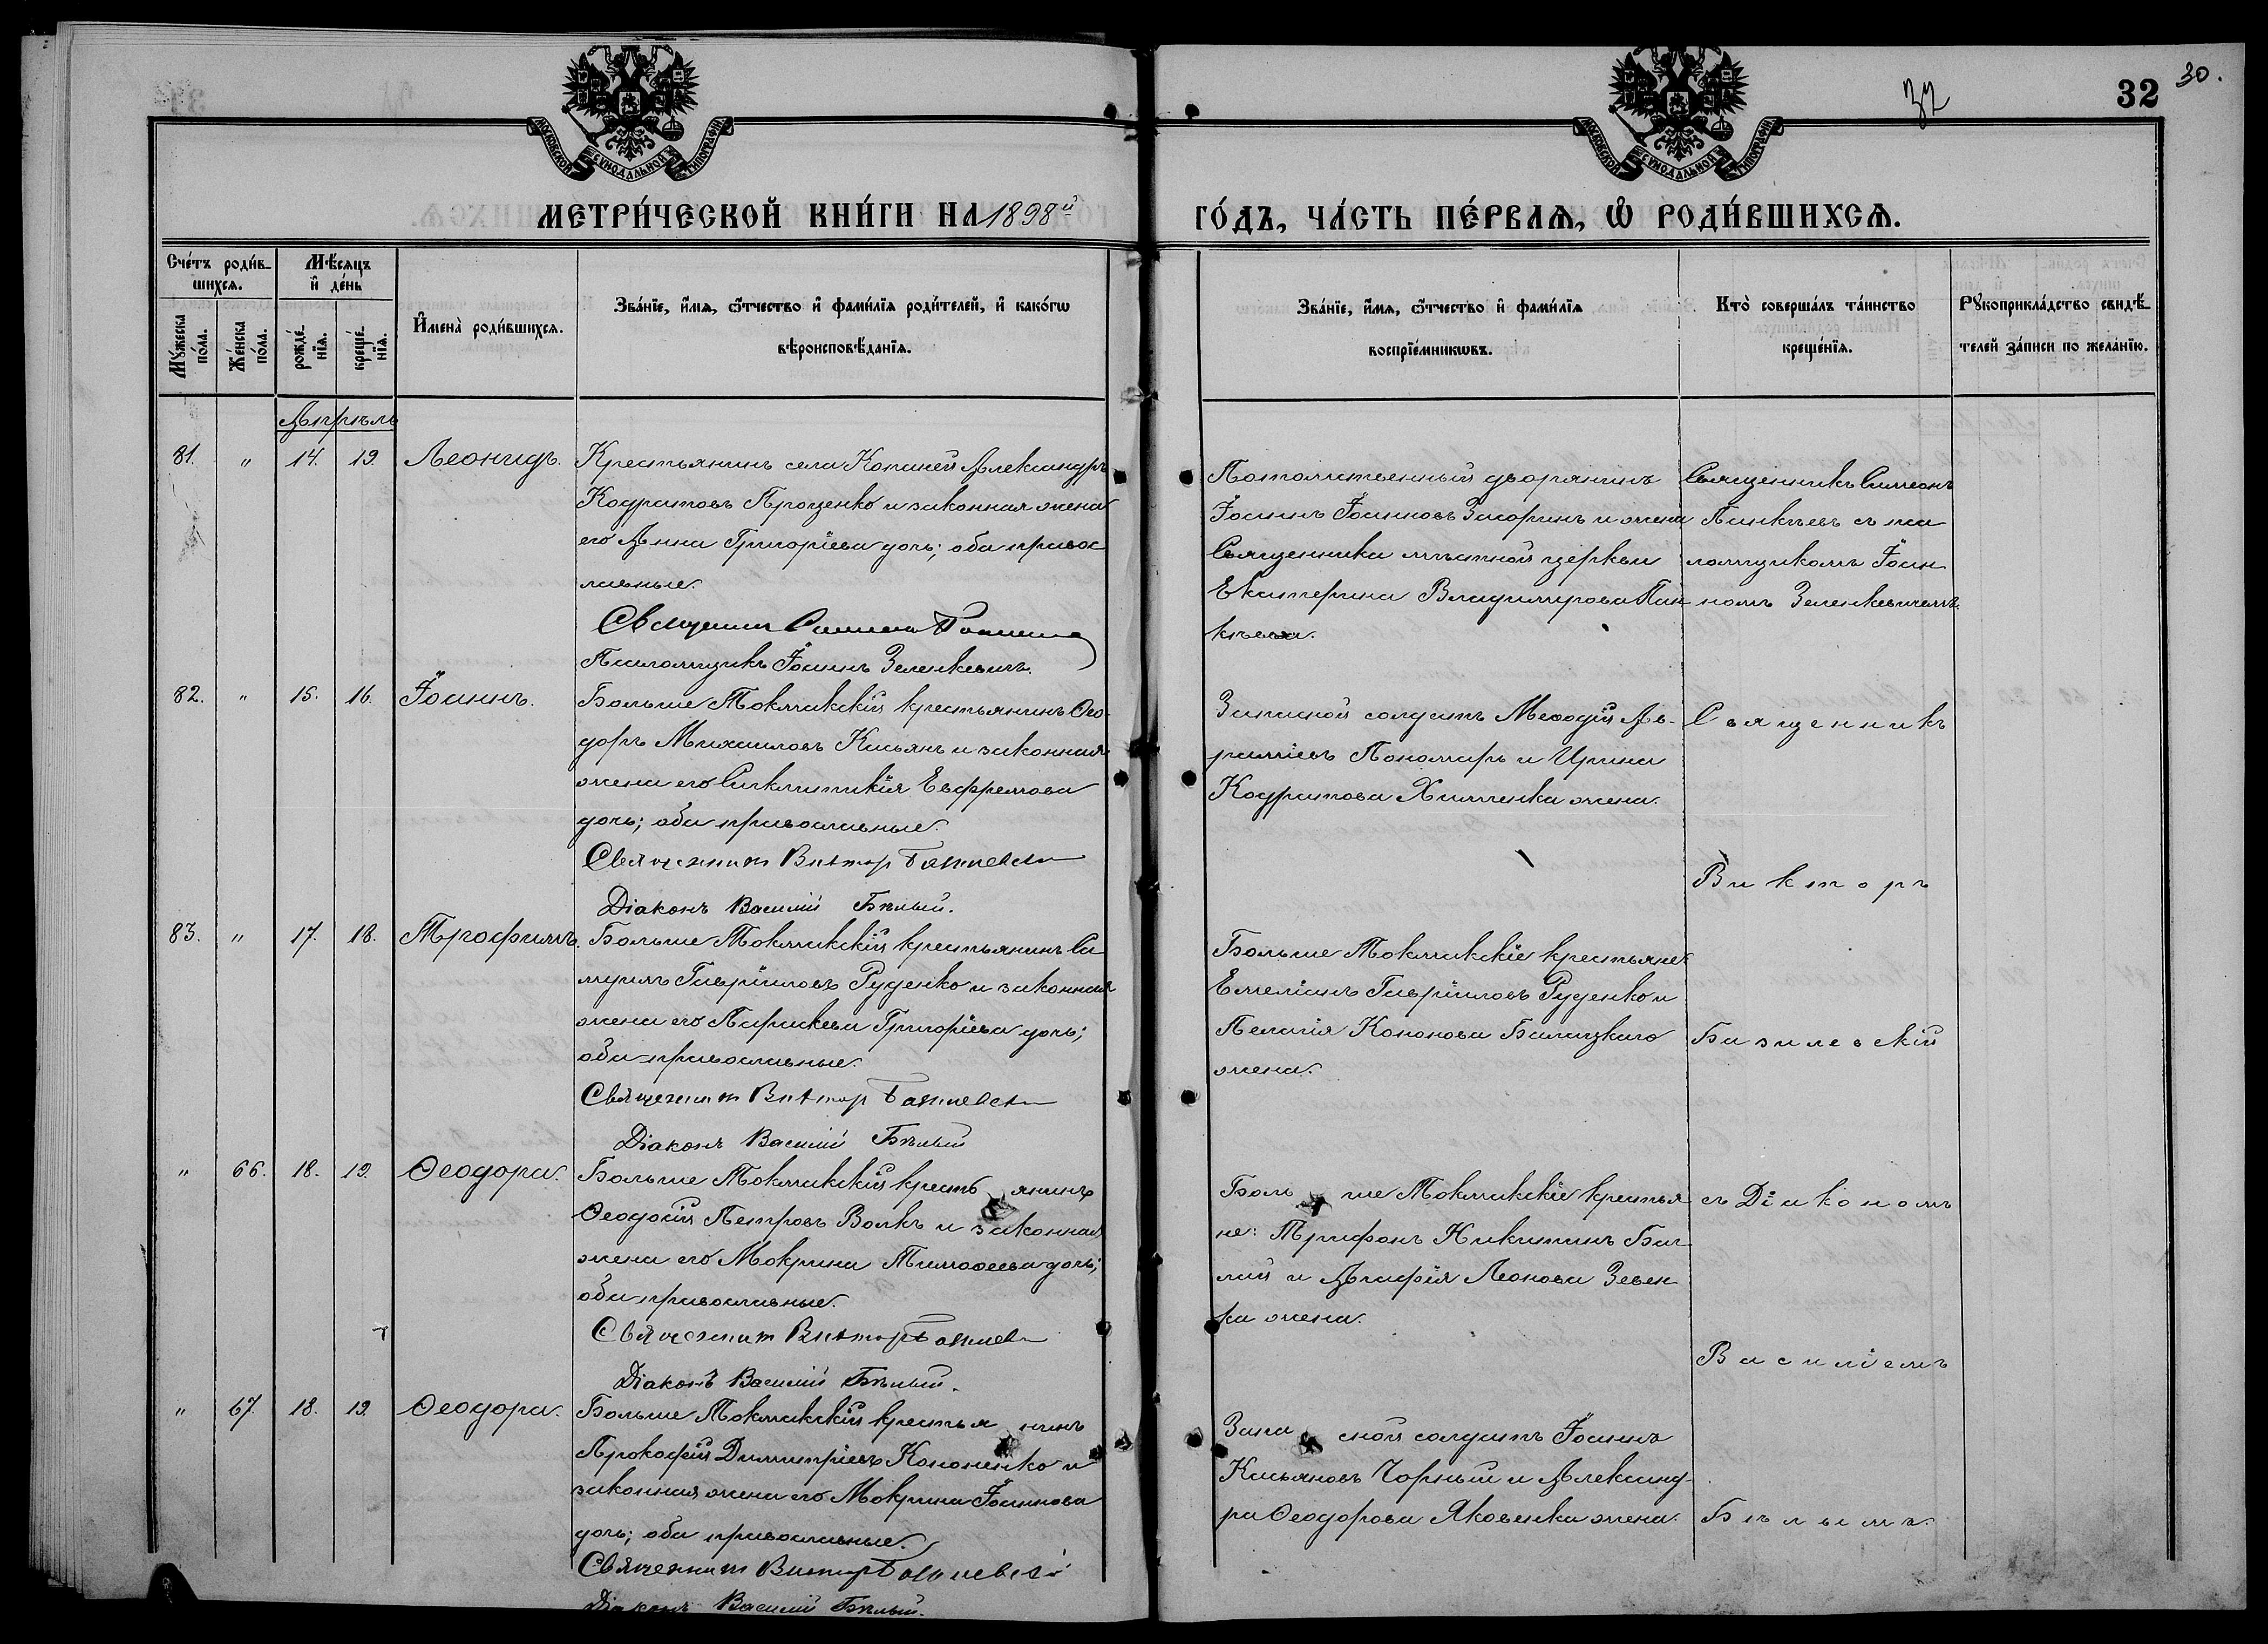 32
32
30.
МОСКОВСКОЙ СѴНОДАЛЬНОЙ ТИПОГРАФІИ
МОСКОВСКОЙ СѴНОДАЛЬНОЙ ТИПОГРАФІИ
МЕТРИ́ЧЕСКОЙ КНИ́ГИ НА 1898й
ГО́ДЪ, ЧА́СТЬ ПЕ́РВАЯ, Ѡ РОДИ́ВШИХСЯ.
Сче́тъ роди́в-
шихся.
Мѣ́сяцъ
и҆ де́нь
Мꙋ́жеска по́ла.
Же́нска по́ла.
рожде́-нїя.
креще́-нїя.
И҆мена̀ роди́вшихся.
Зва́нїе, и҆́мя, ѻ҆́тчество и҆ фами́лїя роди́телей, и҆ како́гѡ
вѣроисповѣ́данїя.
Зва́нїе, и҆́мя, ѻ҆́тчество и҆ фами́лїя
воспрїе́мникѡвъ.
Кто̀ соверша́лъ та́инство
креще́нїя.
Рꙋкоприкла́дство свидѣ́-
телей за́писи по жела́нїю.
Апрѣль
81. " 14. 19. Леонидъ. Крестьянинъ села Копаней Александръ
Кодратовъ Проценко и законная жена
его Анна Григоріева дочь; оба правос-
лавные.
Священникъ Симеонъ
Псаломщикъ Іоаннъ Зеленкевичъ.
Потомственный дворянинъ
Іоаннъ Іоанновъ Загоринъ и жена
Священника мѣстной церкви
Екатерина Владимирова Пан-
кѣева.
Священникъ Симеонъ
Панкѣевъ съ пса
ломщикомъ Іоан
номъ Зеленкевичемъ.
82. " 15. 16. Іоаннъ. Больше Токмакскій крестьянинъ Ѳео-
доръ Михаиловъ Касьянъ и законная
жена его Синклитикія Евфремова
дочь; оба православные.
Священникъ Викторъ Базилевскій
Діаконъ Василій Бѣлый.
Запасной солдатъ Меѳодій Ав-
раміевъ Пономарь и Ирина
Кодратова Химченка жена.
Священникъ
Викторъ
83. " 17. 18. Трофимъ. Больше Токмакскій крестьянинъ Са
муилъ Гавріиловъ Руденко и законная
жена его Параскева Григоріева дочь;
оба православные.
Священникъ Викторъ Базилевскій
Діаконъ Василій Бѣлый
Больше Токмакскіе крестьяне
Емеліанъ Гавріиловъ Руденко и
Пелагія Кононова Билицкаго
жена.
Базилевскій
" 66. 18. 19. Ѳеодора. Больше Токмакскій крестьянинъ
Ѳеодосій Петровъ Волкъ и законная
жена его Мокрина Тимоѳеева дочь;
оба православные.
Священникъ Викторъ Базилев
Діаконъ Василій Бѣлый.
Больше Токмакскіе крестья
не: Трифонъ Никитинъ
и Агафія Леонова Зевен-
ка жена.
съ Діакономъ
Василіемъ
" 67. 18. 19. Ѳеодора. Больше Токмакскій крестьянинъ
Прокофій Димитріевъ Кононенко и
законная жена его Мокрина Іоаннова
дочь; оба православные.
Священникъ Викторъ Базилевскій
Діаконъ Василій Бѣлый.
Запасной солдатъ Іоаннъ
Касьяновъ Чорный и Александ-
ра Ѳеодорова Яковенка жена.
Бѣлымъ.